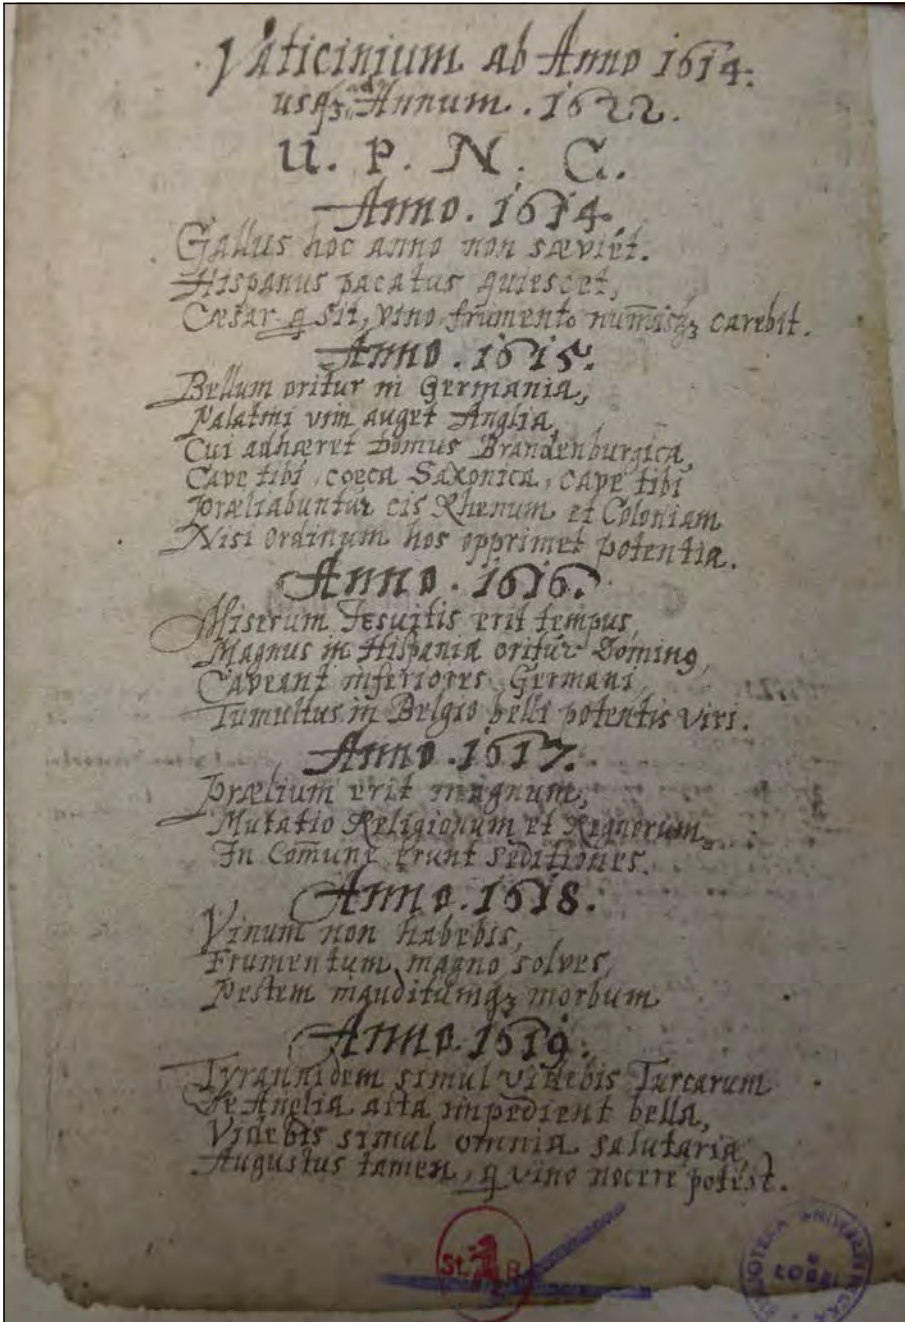 Vaticinium ab Anno 1614.
usqꝫ ad Annum. 1622.
U. P. N. C.
Anno. 1614.
Gallus hoc anno non sæviet.
Hispanus pacatus quiescet,
Cæsar q sit, vino frumento num̄isqꝫ carebit.
Anno. 1615.
Bellum oritur in Germania,
Palatini vim auget Anglia,
Cui adhæret Domus Brandenburgica,
Cave tibi, coeca Saxonica, cave tibi
Præliabuntur cis Rhenum et Coloniam
Nisi Ordinum hos opprimet potentia.
Anno. 1616.
Miserum Jesuitis erit tempus,
Magnus in Hispania oritur Dominꝰ,
Caveant inferiores Germani,
Tumultus in Belgio belli potentis viri.
Anno. 1617.
Prælium erit magnum,
Mutatio Religionum et Regnorum,
In Com̄une erunt seditiones.
Anno. 1618.
Vinum non habebis,
Frumentum magno solves,
Pestem inauditumqꝫ morbum
Anno. 1619.
Tyrannidem simul videbis Turcarum
Se Anglia impedient bella,
Videbis simul omnia salutaria,
Augustus tamen, q vino nocere potest.
St. B.